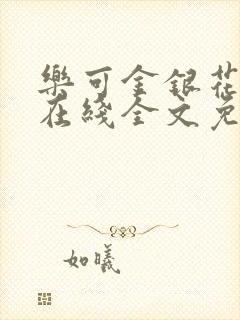 樂可金銀花
在綫全文免
如曦